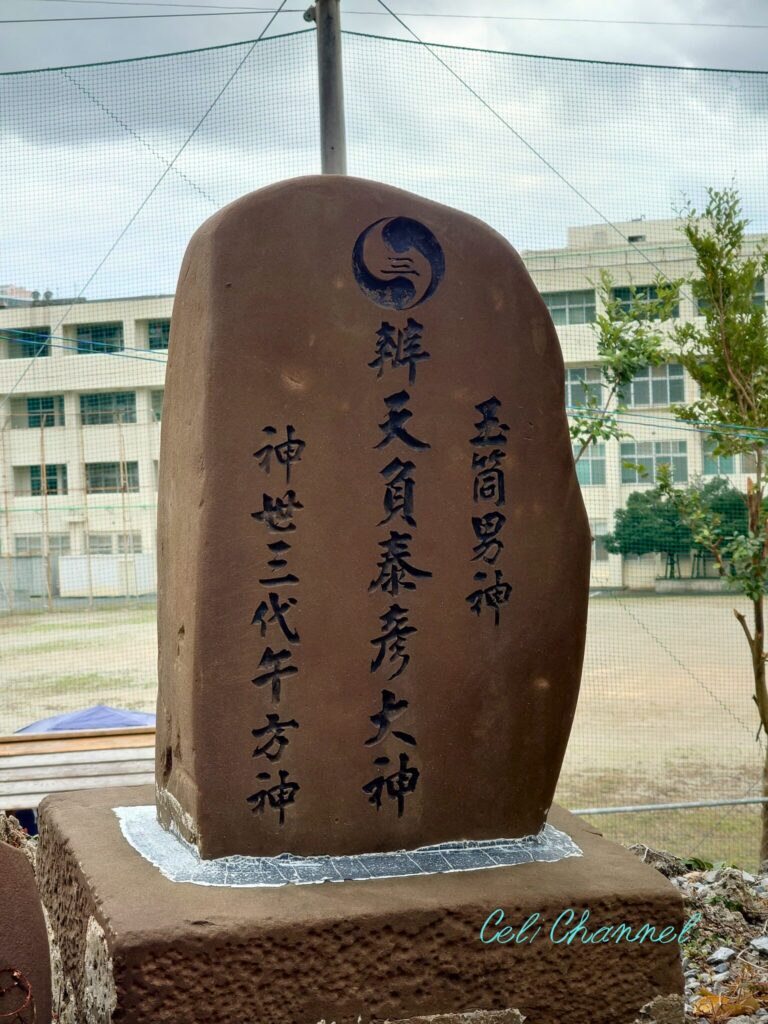 三
玉筒男神
辨天負泰彦大神
神世三代午方神
Celi Channel